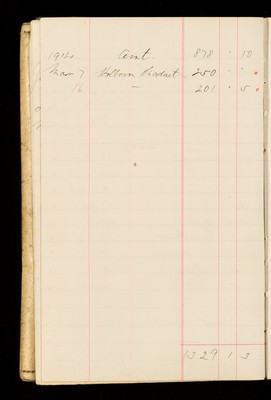 1912 Amt 878 " 10
Mar 7 Holborn Viaduct 250 " "
16 — 201 " 5
1329 1 3